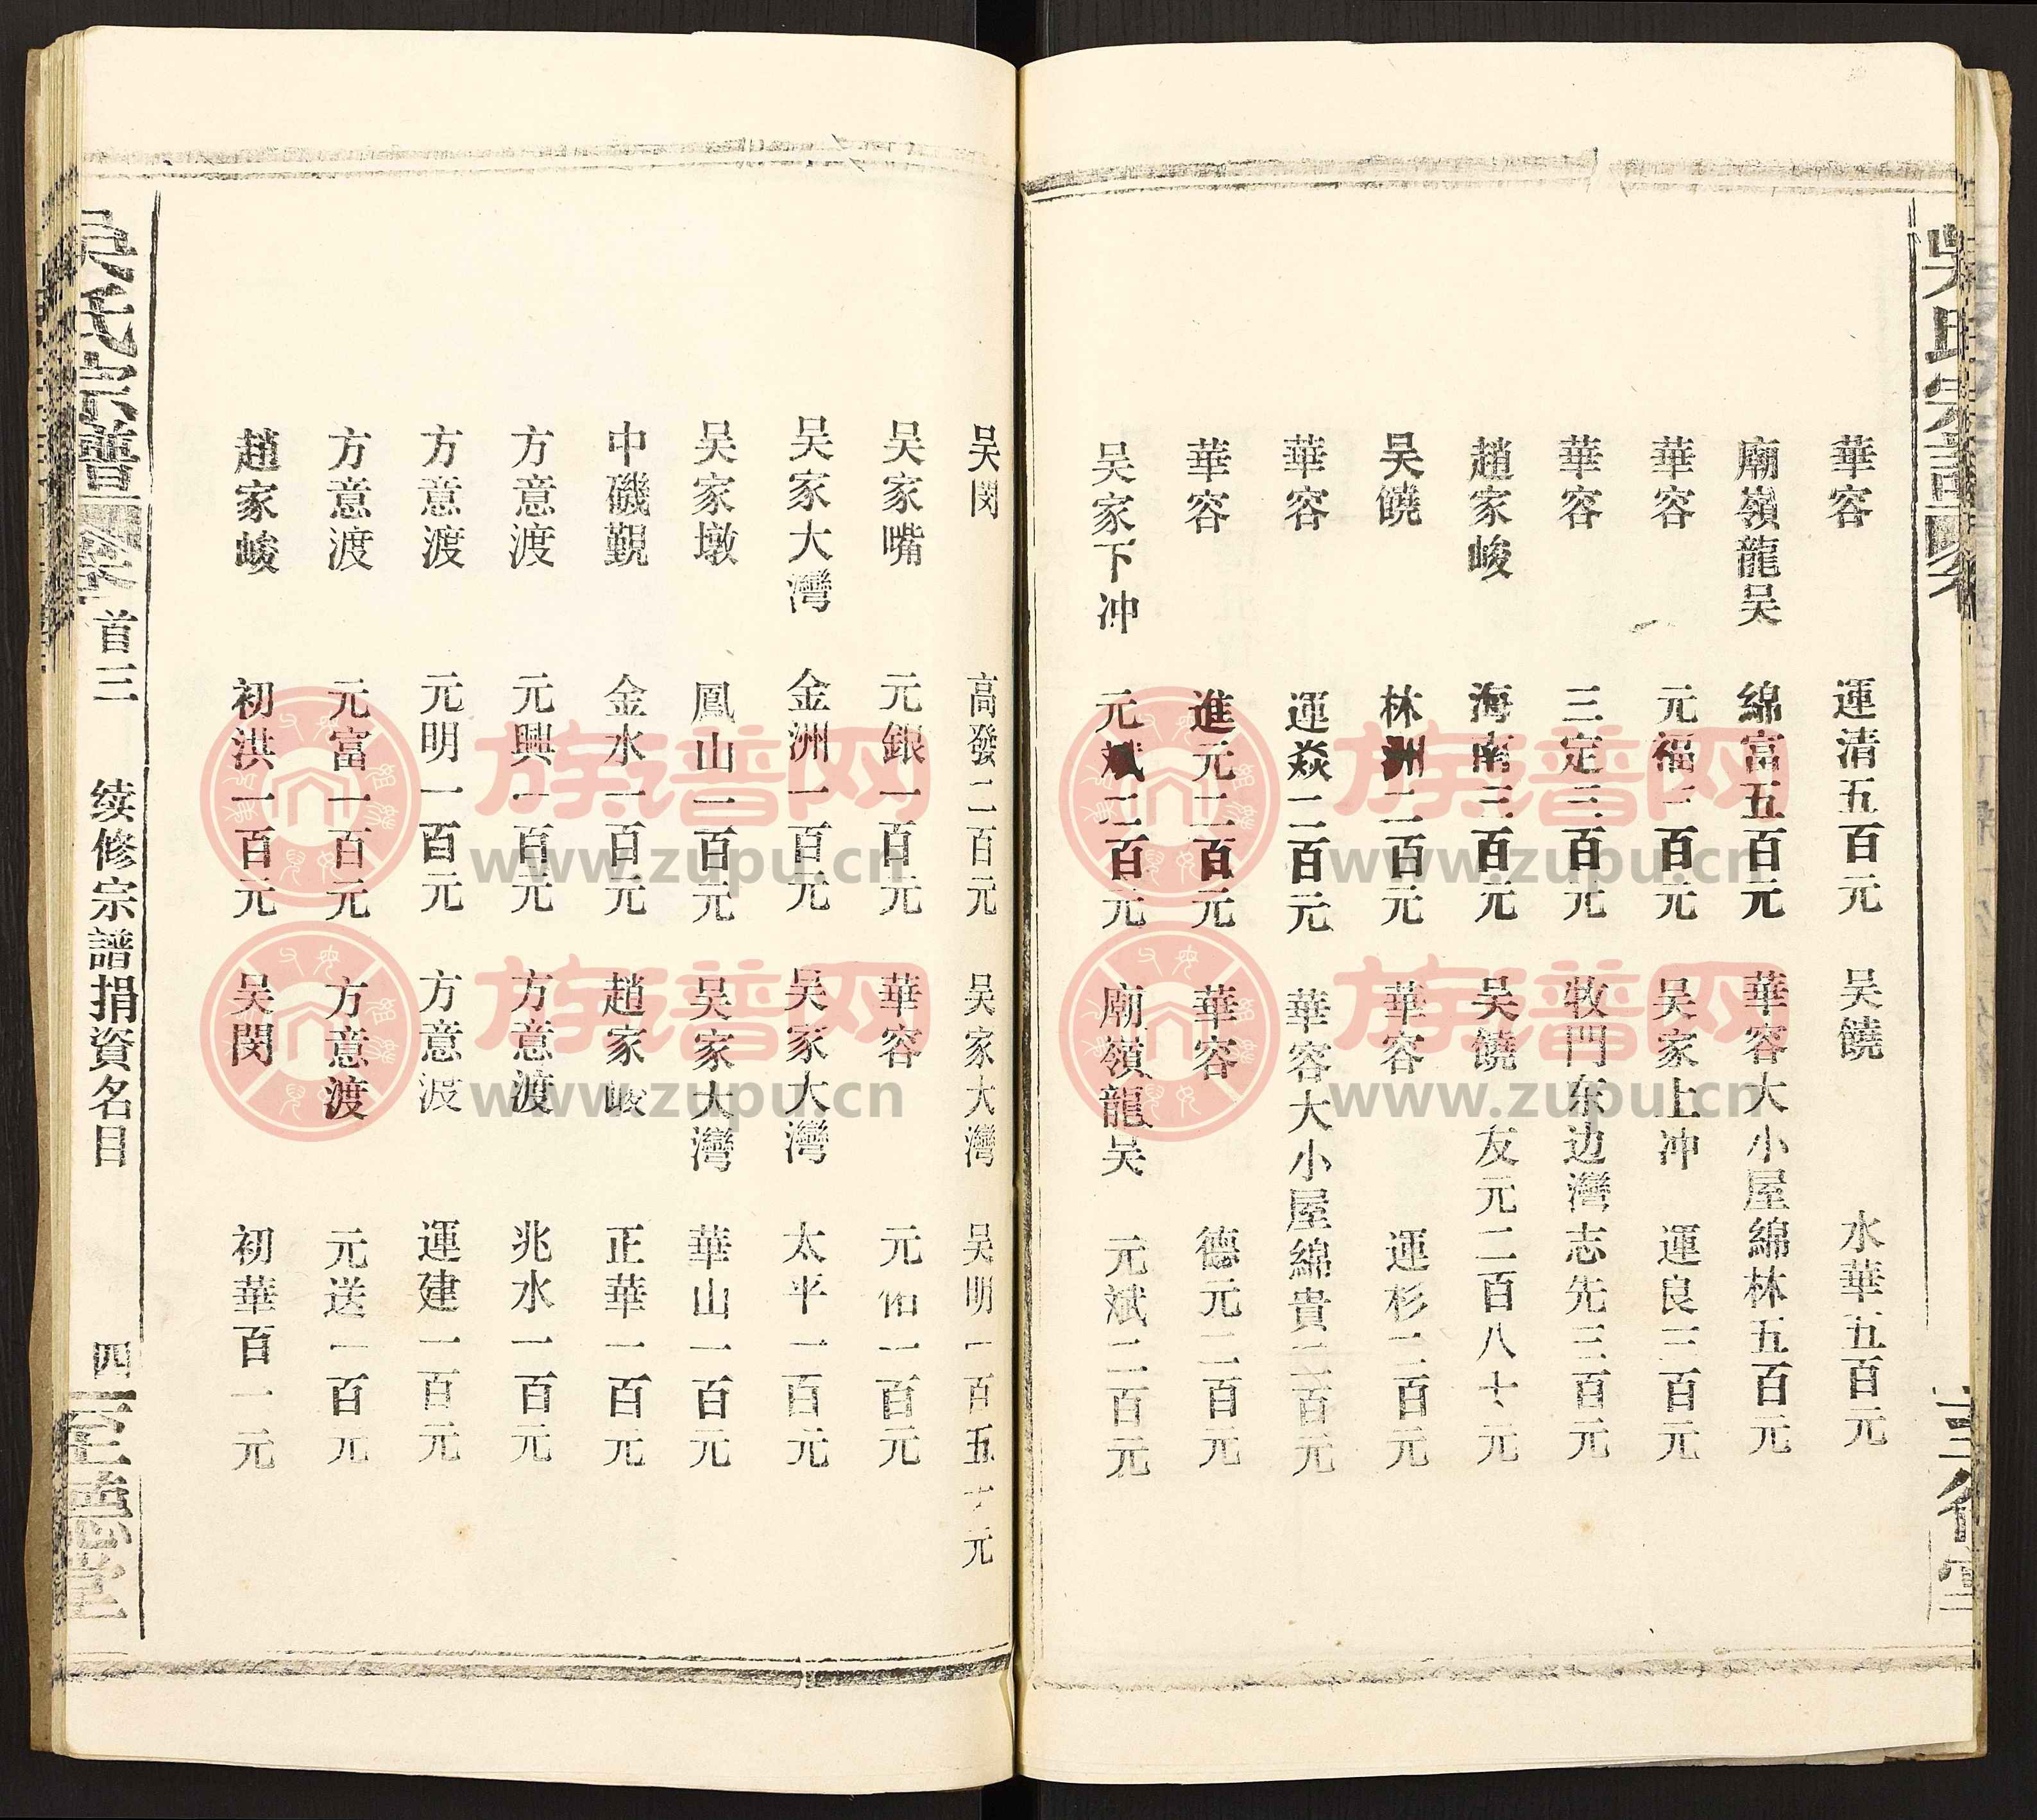 華容 運清五百元 吴饒 水華五百元
廟嶺龍吴 綿富五百元 華容大小屋綿林五百元
華容 元福三百元 吴家上冲 運良三百元
華容 三定三百元 牧門东边灣志先三百元
趙家峻 海南三百元 吴饒 友元二百八十元
吴饒 林洲二百元 華容 運杉二百元
華容 運焱二百元 華容大小屋綿貴二百元
華容 進元二百元 華容 德元二百元
吴家下冲 元斌二百元 廟嶺龍吴 元斌二百元
吴閔 高發二百元 吴家大灣 吴明一百五十元
吴家嘴 元銀一百元 華容 元佑一百元
吴家大灣 金洲一百元 吴家大灣 太平一百元
吴家墩 鳳山一百元 吴家大灣 華山一百元
中磯觐 金水一百元 趙家峻 正華一百元
方意渡 元興一百元 方意渡 兆水一百元
方意渡 元明一百元 方意渡 運建一百元
方意渡 元富一百元 方意渡 元送一百元
趙家峻 初洪一百元 吴閔 初華百一元
吴氏宗譜 卷 首三 续修宗譜捐資名目 四 至德堂
族谱网
www.zupu.cn
族谱网
www.zupu.cn
族谱网
www.zupu.cn
族谱网
www.zupu.cn